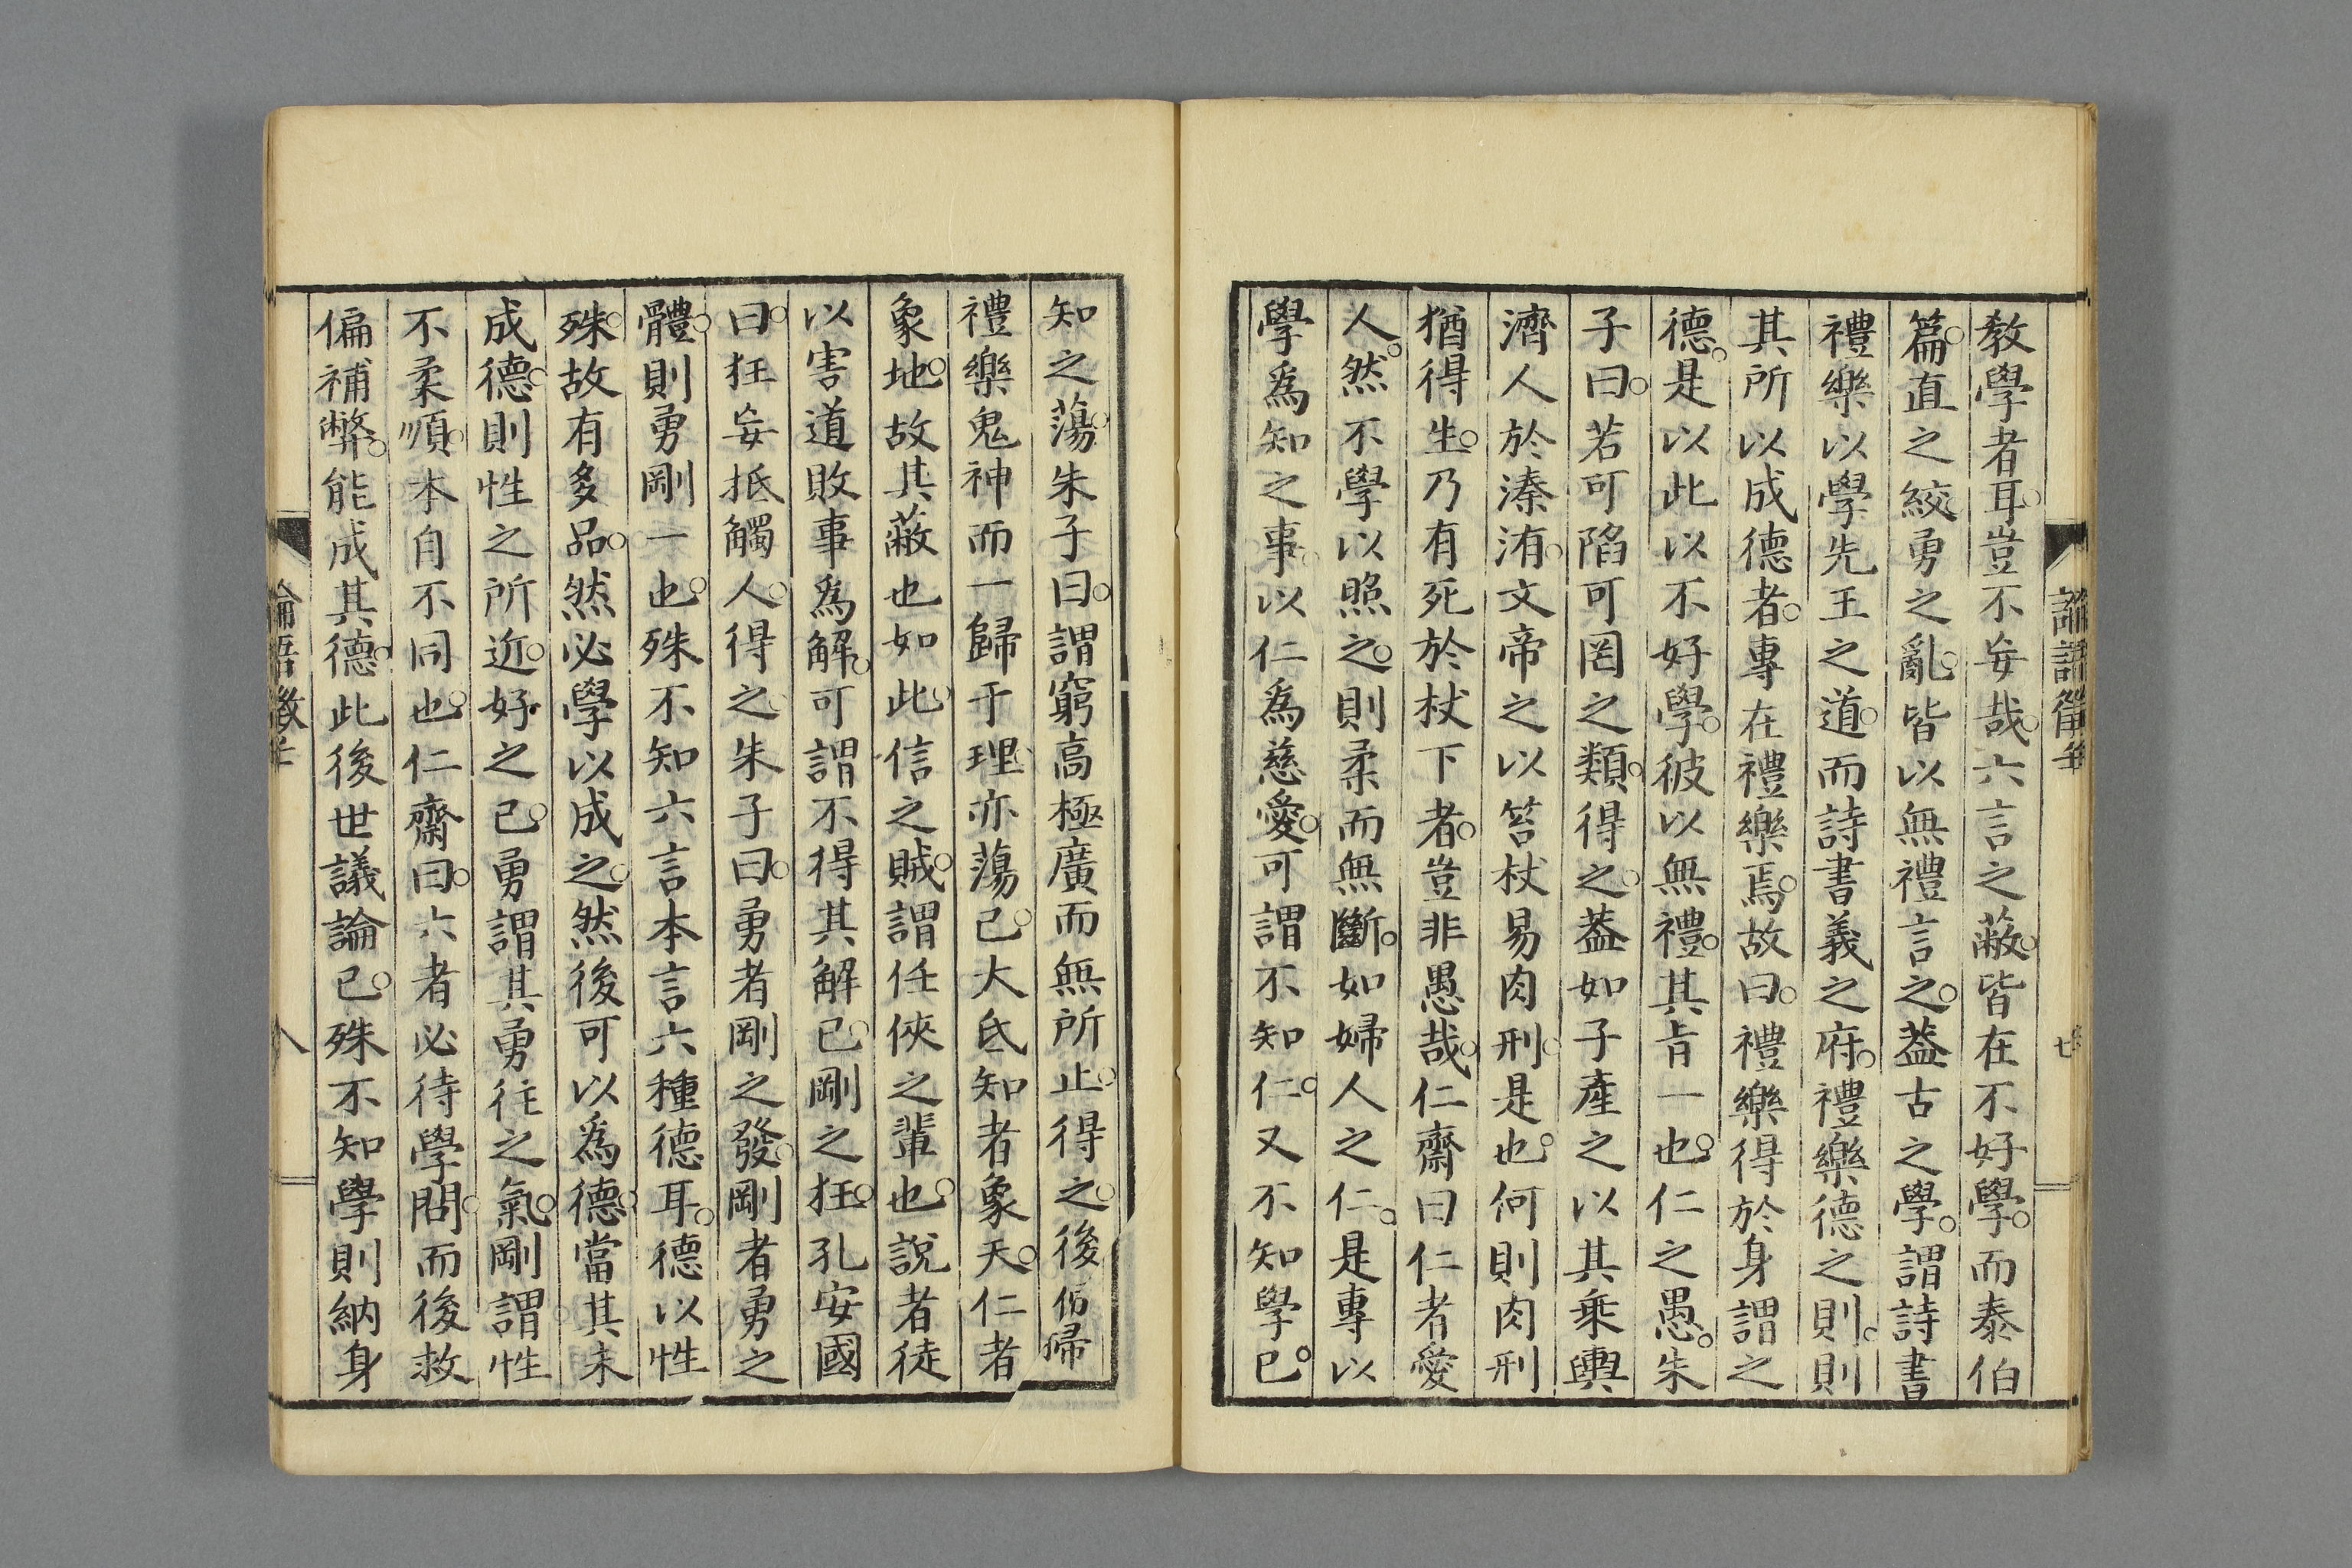 教學者耳。豈不妄哉。六言之蔽。皆在不好學。而泰伯
篇。直之絞。勇之亂。皆以無禮言之。蓋古之學。謂詩書
禮樂以學先王之道。而詩書義之府。禮樂德之則。則
其所以成德者。專在禮樂焉。故曰。禮樂得於身謂之
德。是以此以不好學。彼以無禮。其㫖一也。仁之愚。朱
子曰。若可陷可罔之類。得之。蓋如子產之以其乘輿
濟人於溱洧。文帝之以笞杖易肉刑。是也。何則肉刑
猶得生。乃有死於杖下者。豈非愚哉。仁齋曰仁者愛
人。然不學以照之。則柔而無斷。如婦人之仁。是專以
學爲知之事。以仁爲慈愛。可謂不知仁。又不知學已。
知之蕩。朱子曰。謂窮高極廣而無所止。得之。後儒掃
禮樂鬼神而一歸于理。亦蕩已。大氐知者象天。仁者
象地。故其蔽也如此。信之賊。謂任俠之輩也。說者徒
以害道敗事爲解。可謂不得其解已。剛之狂。孔安國
曰。狂妄抵觸人。得之。朱子曰。勇者剛之發。剛者勇之
體。則勇剛一也。殊不知六言本言六種德耳。德以性
殊。故有多品。然必學以成之。然後可以爲德。當其未
成德。則性之所近。好之已。勇謂其勇往之氣。剛謂性
不柔順。本自不同也。仁齋曰。六者必待學問。而後救
偏補弊。能成其德。此後世議論已。殊不知學則納身
論語徵壬
八